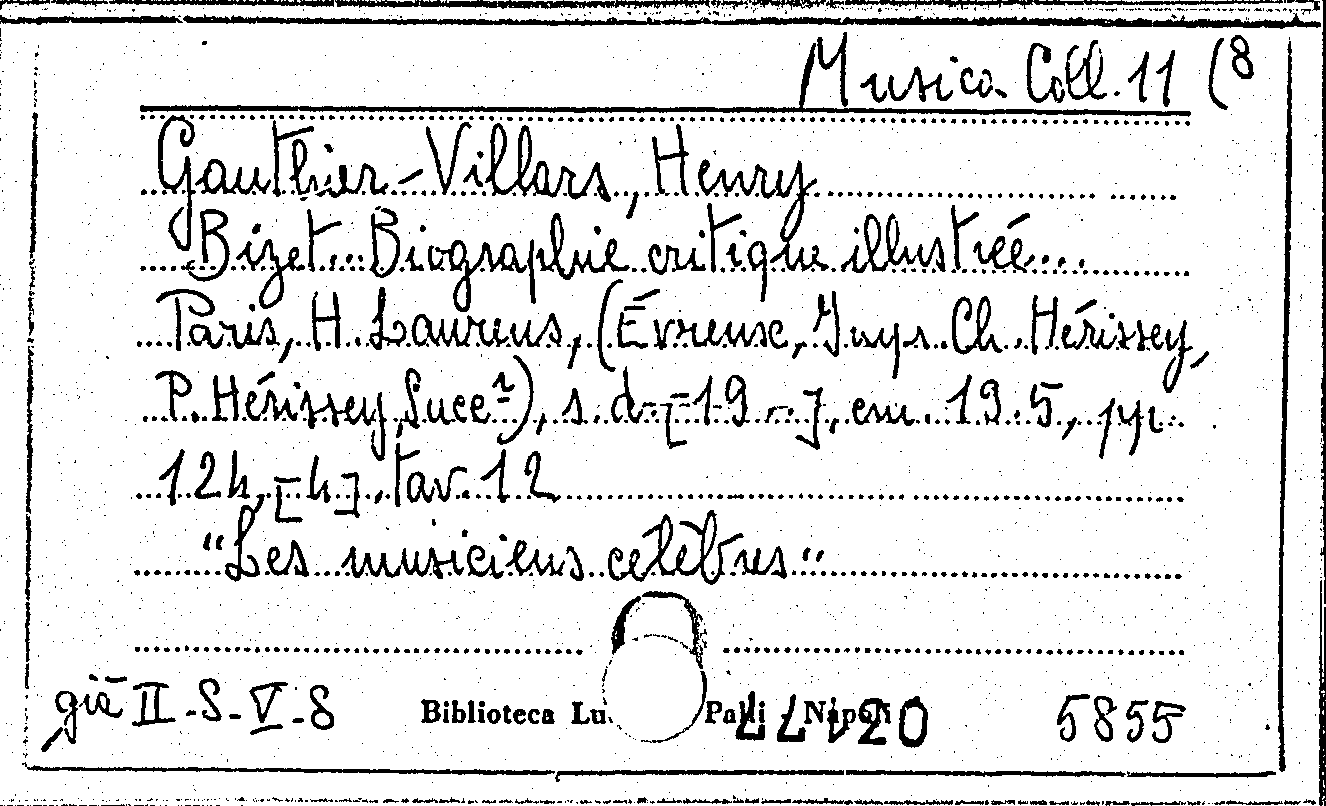 Musica Coll. 11 (8
Gauthier-Villars, Henry
Bizet... Biographie critique illustrée....
Paris, H. Laurens, (Évreux, Imp. Ch. Hérissey,
P. Hérissey, Succ.r), s. d. [19--], cm. 19.5, pp.
124, [4], tav. 12
"Les musiciens célèbres"
già II-S-V-8 Biblioteca Lu Palli - Napoli 5855